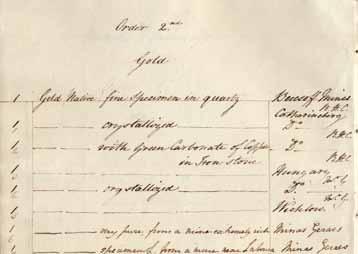 Order 2.nd
Gold
1 Gold Native fine specimen in quartz Beresoff Mines
W.H.C
Catharineburg
1 crystallized Do
B.H.C.
1 with Green Carbonate of Copper Do
in Iron Stone B.H.C
Hungary
1 crystallized Do
1 Wicklow
1 very pure, from a mine extremely rich Minas Geraes
specimens, from a mine near Minas Geraes